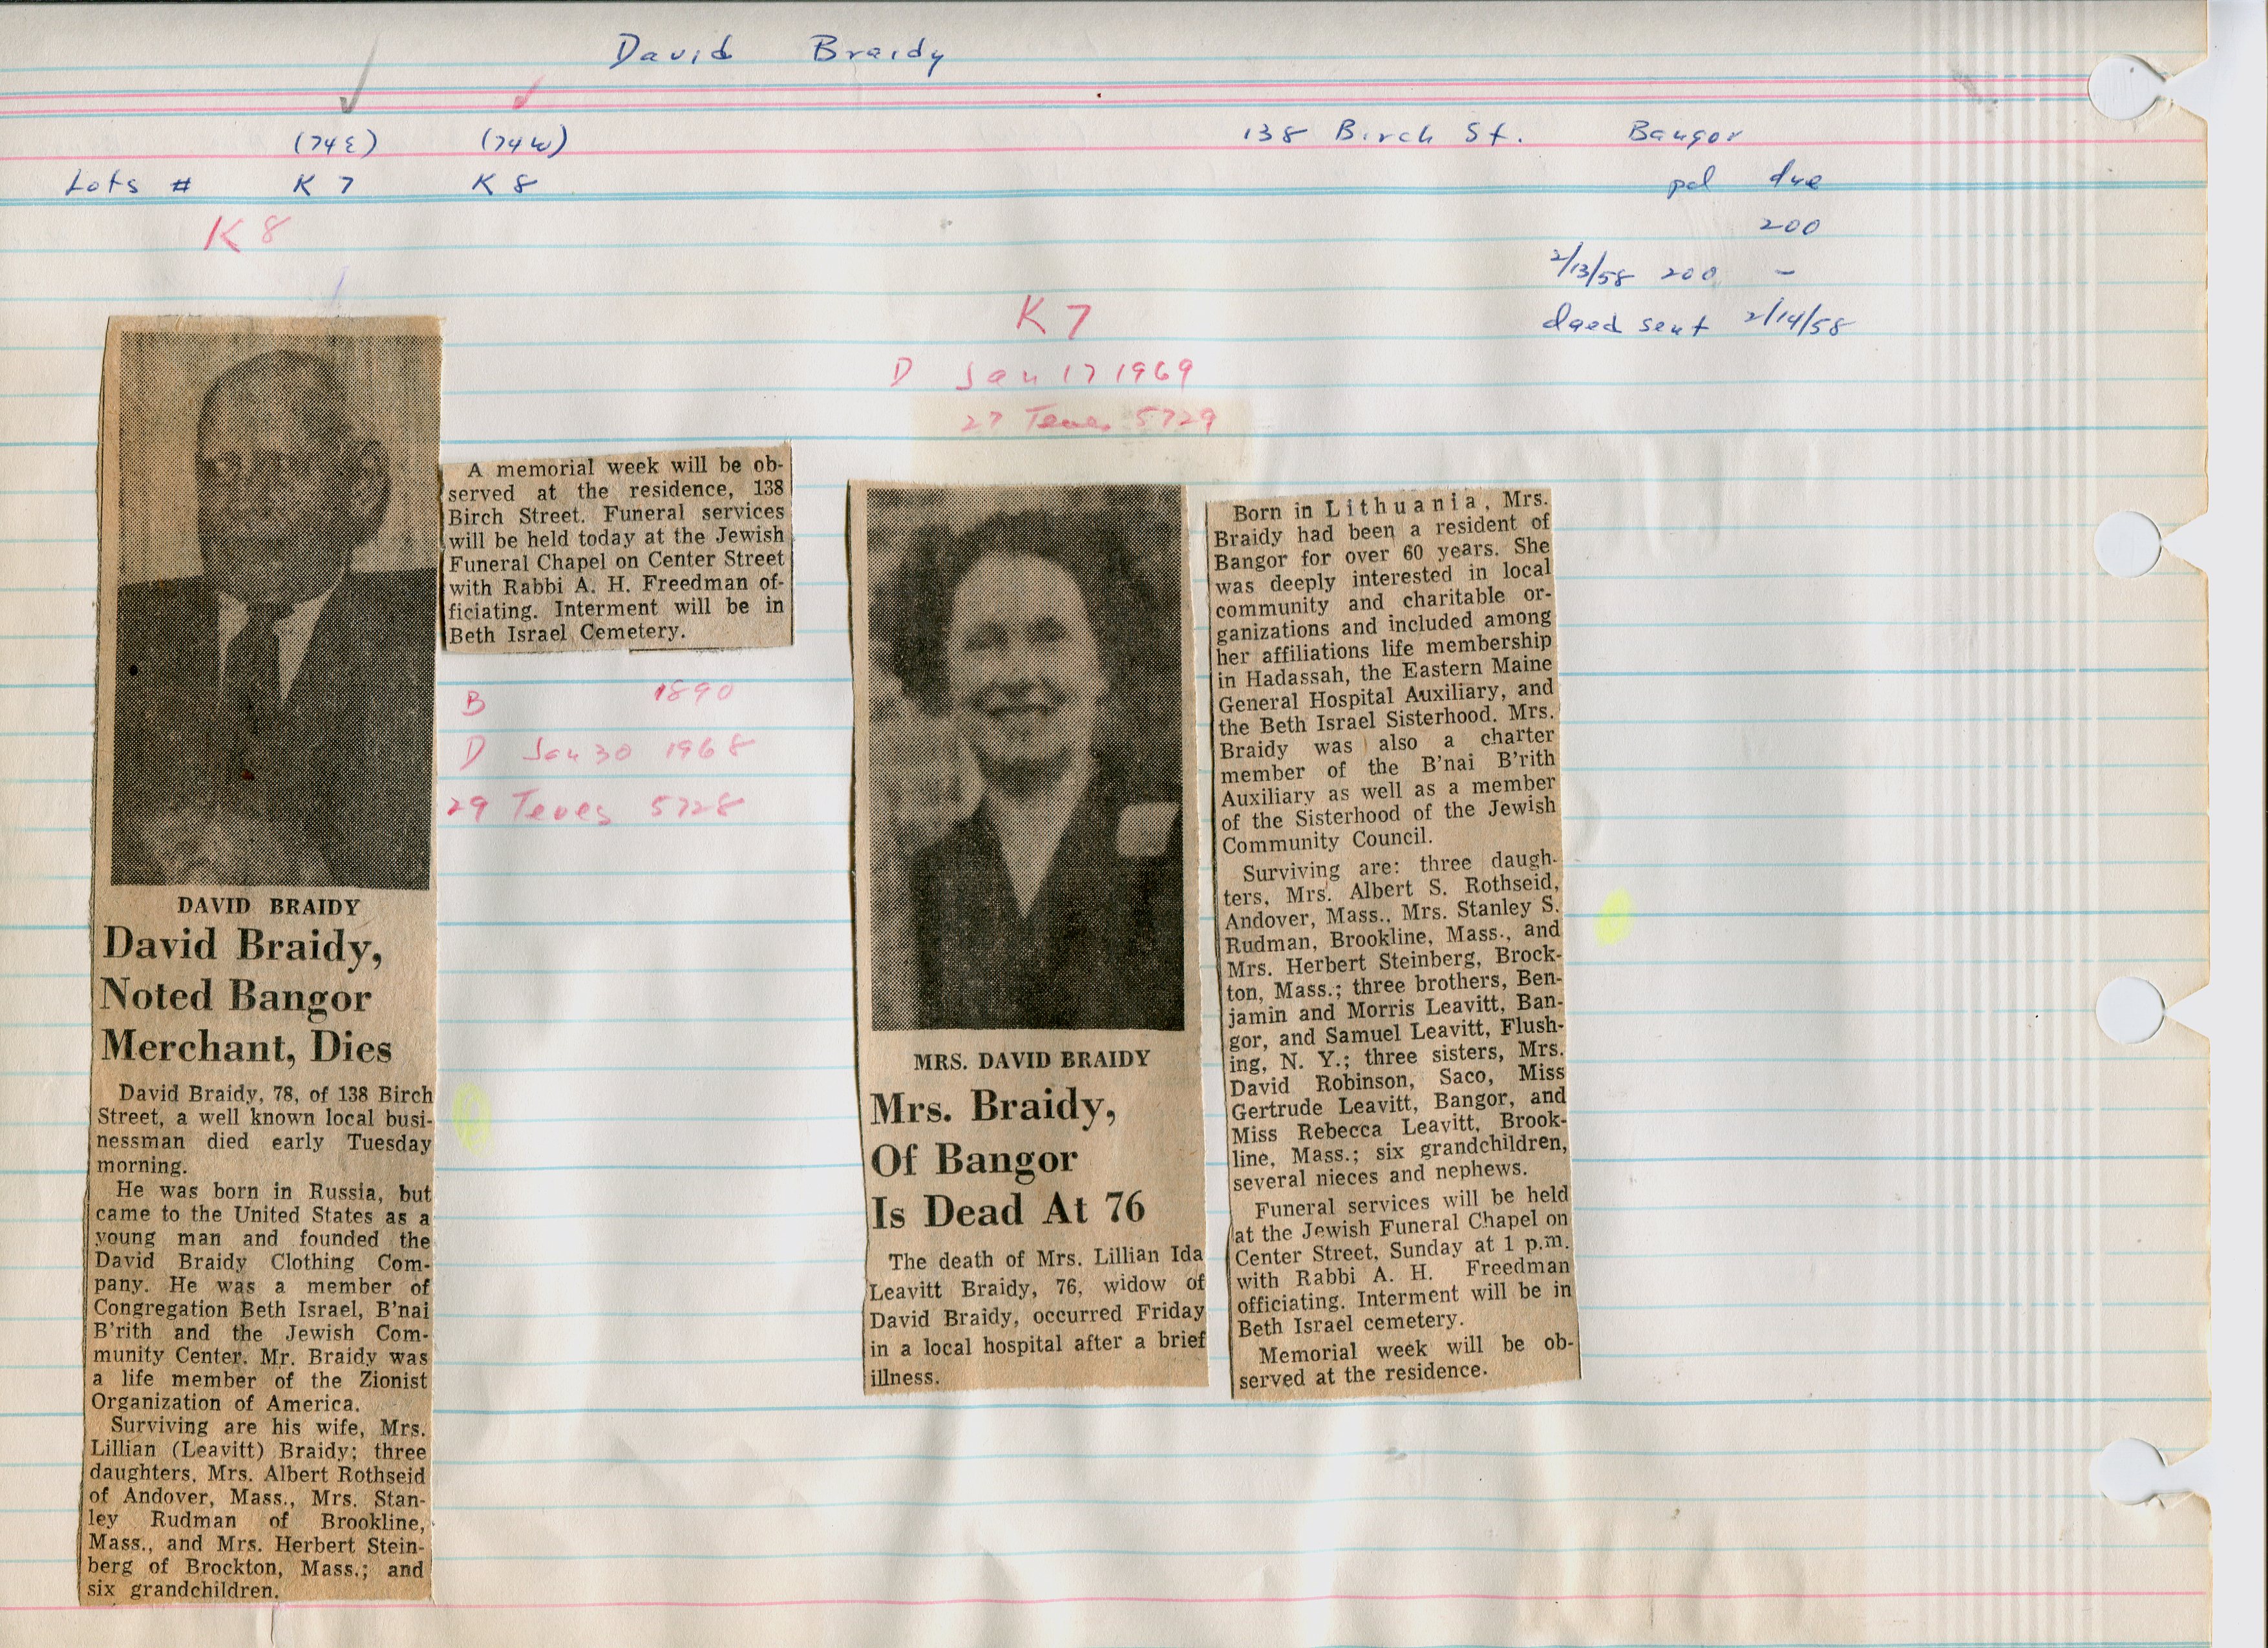 David Braidy
(74E) (74W)
138 Birch St. Bangor
Lots # K7 K8
pd due
K8
200
2/13/58 200 -
deed sent 2/14/58
K7
D Jan 17 1969
27 Teves 5729
DAVID BRAIDY
David Braidy,
Noted Bangor
Merchant, Dies
David Braidy, 78, of 138 Birch
Street, a well known local busi-
nessman died early Tuesday
morning.
He was born in Russia, but
came to the United States as a
young man and founded the
David Braidy Clothing Com-
pany. He was a member of
Congregation Beth Israel, B'nai
B'rith and the Jewish Com-
munity Center. Mr. Braidy was
a life member of the Zionist
Organization of America.
Surviving are his wife, Mrs.
Lillian (Leavitt) Braidy; three
daughters, Mrs. Albert Rothseid
of Andover, Mass., Mrs. Stan-
ley Rudman of Brookline,
Mass., and Mrs. Herbert Stein-
berg of Brockton, Mass.; and
six grandchildren.
A memorial week will be ob-
served at the residence, 138
Birch Street. Funeral services
will be held today at the Jewish
Funeral Chapel on Center Street
with Rabbi A. H. Freedman of-
ficiating. Interment will be in
Beth Israel Cemetery.
B 1890
D Jan 30 1968
29 Teves 5728
MRS. DAVID BRAIDY
Mrs. Braidy,
Of Bangor
Is Dead At 76
The death of Mrs. Lillian Ida
Leavitt Braidy, 76, widow of
David Braidy, occurred Friday
in a local hospital after a brief
illness.
Born in Lithuania, Mrs.
Braidy had been a resident of
Bangor for over 60 years. She
was deeply interested in local
community and charitable or-
ganizations and included among
her affiliations life membership
in Hadassah, the Eastern Maine
General Hospital Auxiliary, and
the Beth Israel Sisterhood. Mrs.
Braidy was also a charter
member of the B'nai B'rith
Auxiliary as well as a member
of the Sisterhood of the Jewish
Community Council.
Surviving are: three daugh-
ters, Mrs. Albert S. Rothseid,
Andover, Mass., Mrs. Stanley S.
Rudman, Brookline, Mass., and
Mrs. Herbert Steinberg, Brock-
ton, Mass.; three brothers, Ben-
jamin and Morris Leavitt, Ban-
gor, and Samuel Leavitt, Flush-
ing, N. Y.; three sisters, Mrs.
David Robinson, Saco, Miss
Gertrude Leavitt, Bangor, and
Miss Rebecca Leavitt, Brook-
line, Mass.; six grandchildren,
several nieces and nephews.
Funeral services will be held
at the Jewish Funeral Chapel on
Center Street, Sunday at 1 p.m.
with Rabbi A. H. Freedman
officiating. Interment will be in
Beth Israel cemetery.
Memorial week will be ob-
served at the residence.